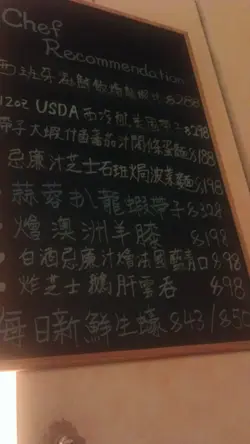 Chef
Recommendation
西班牙 $288
12oz USDA 西冷 $298
帶子大蝦什菌蕃茄汁闊條蛋麵 $188
忌廉汁芝士石斑焗菠菜麵 $198
蒜蓉扒龍蝦帶子 $328
燴澳洲羊膝 $198
白酒忌廉汁燴法國藍青口 $98
炸芝士鵝肝雲吞 $98
每日新鮮生蠔 $43/$50